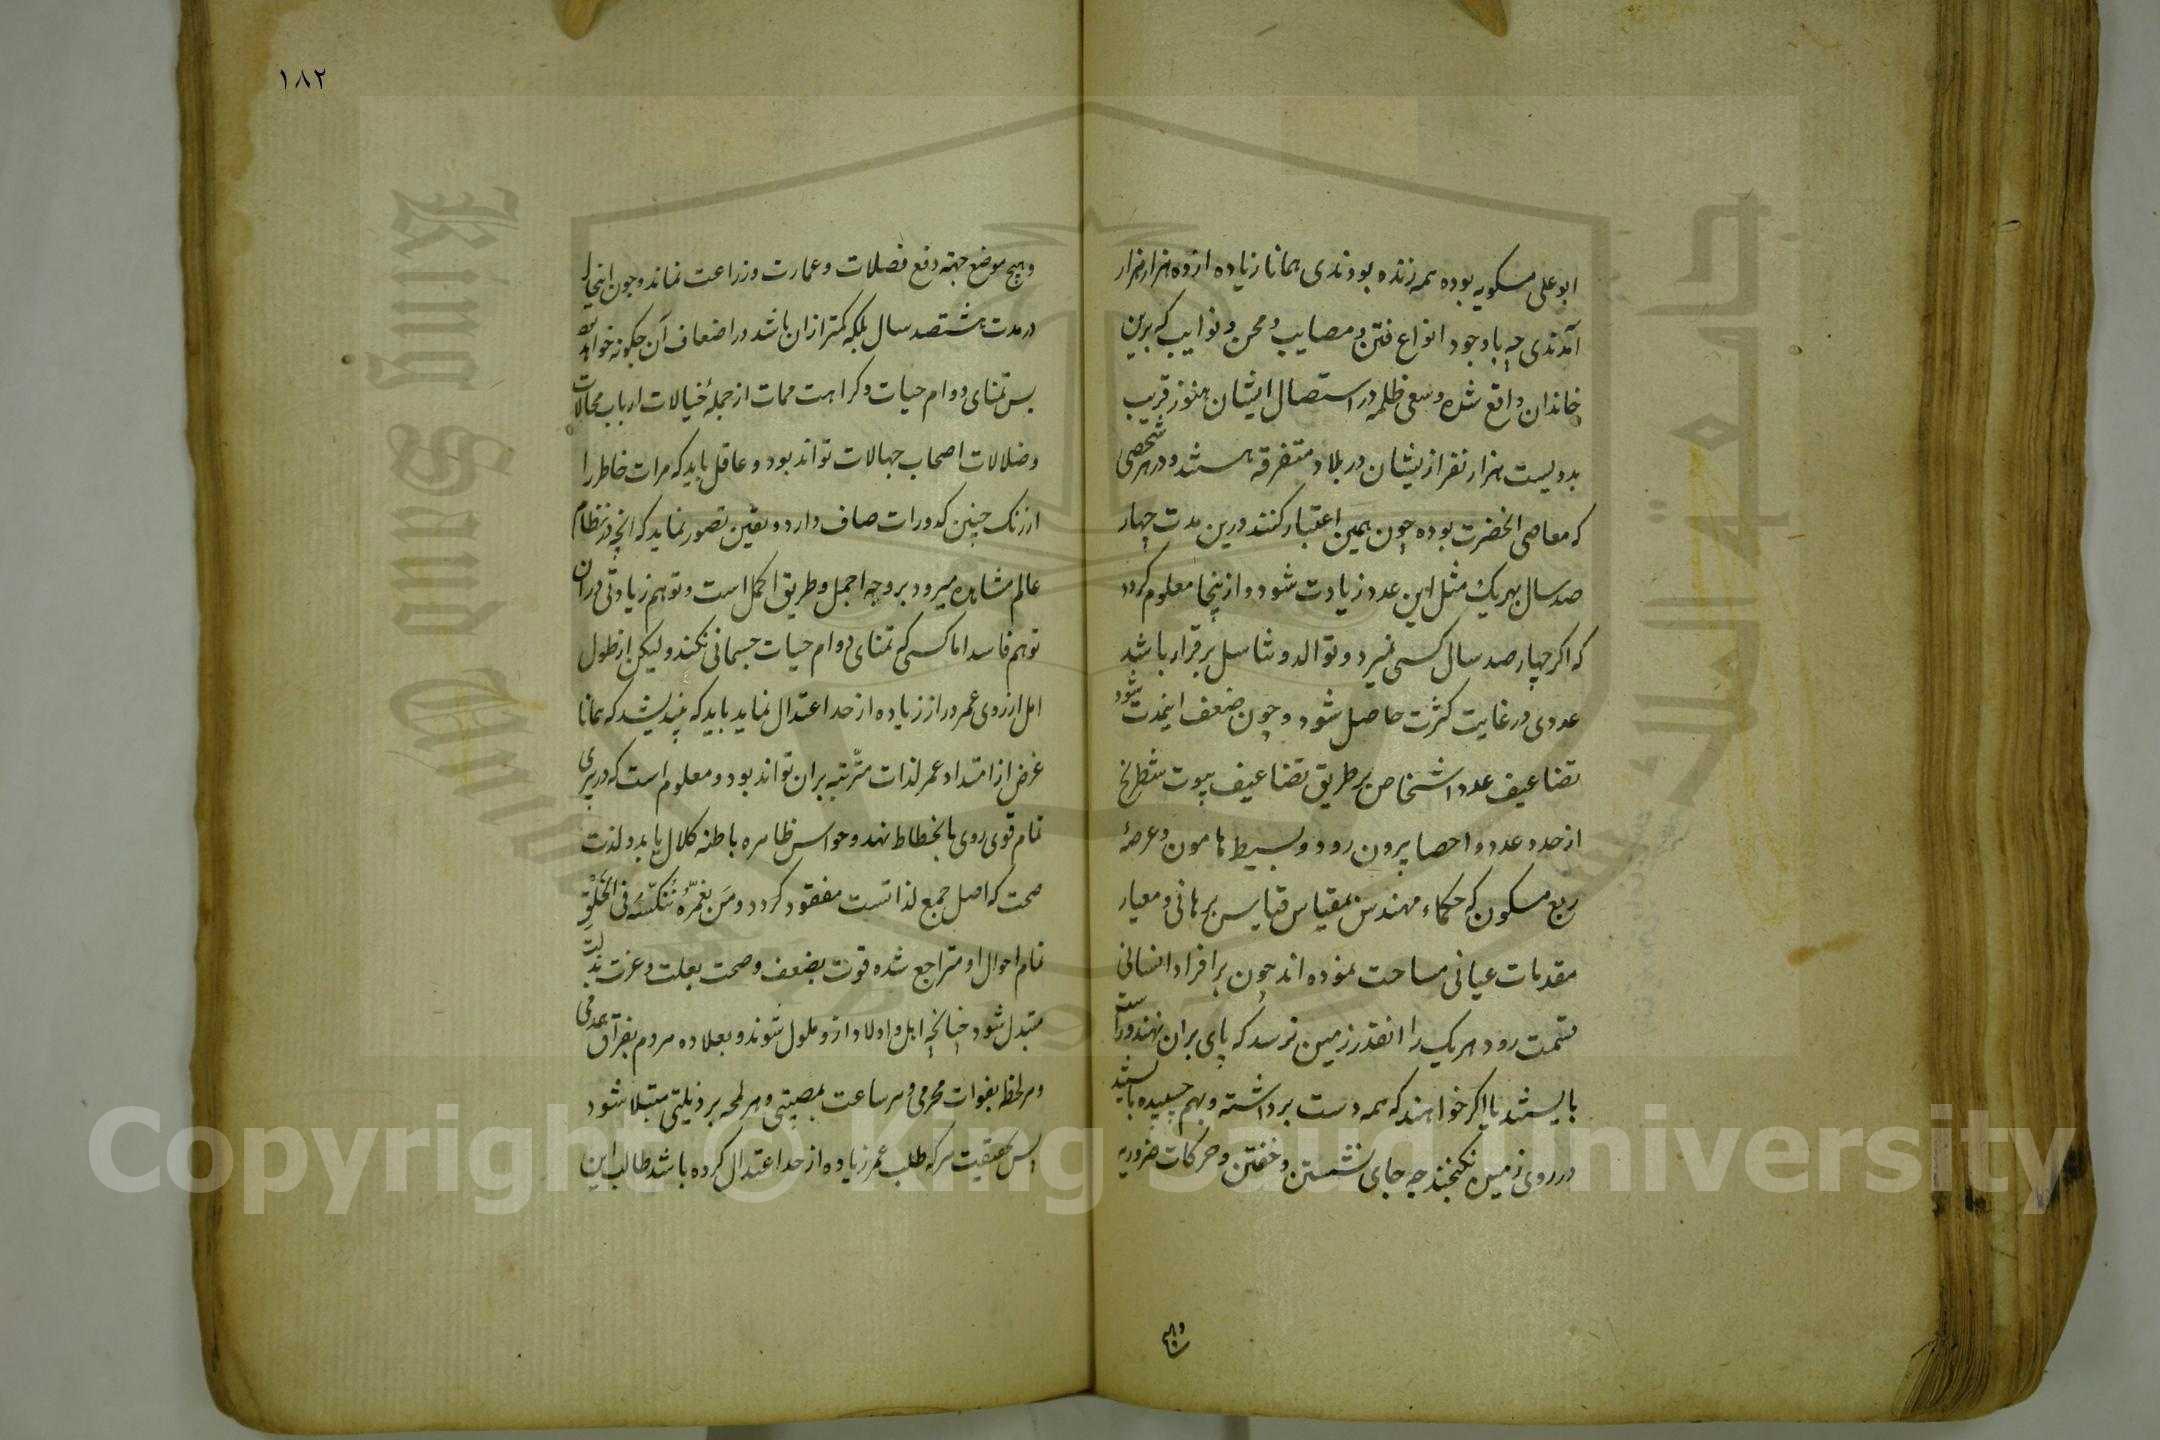 ابو علی مسکویه بوده همه زنده بودندی همانا زیاده از ده هزار هزار
آمدندی چه باوجود انواع فتن و مصایب و محن و نوایب که برین
خاندان واقع شده وسعی ظلمه در استصال ایشان هنوز قریب
بدویست هزار نفر ازیشان در بلاد متفرقه هستند و در هر شخصی
که معاصی الحضرت بوده چون همین اعتبار کنند درین مدت چهار
صد سال بهریک مثل این عدد زیادت شود و ازینجا معلوم کردد
که اکر چهار صد سال کسی نمیرد و توالد و تناسل برقرار باشد
عددی در غایت کثرت حاصل شود و چون ضعف اینمدت شود
تضاعیف عدد اشخاص بر طریق تضاعیف بیوت شطرنج
از حد و عدد و احصا بیرون رود و بسیط هامون و عرصهٔ
ربع مسکون که حکماء مهندس بمقیاس قیاس برهانی و معیار
مقدمات عیانی مساحت نموده اند چون بر افراد انسانی
قسمت رود هریک را انقدر زمین نرسد که پای بران نهند و راست
بایستند تا اکر خواهند که همه دست برداشته و بهم چسپیده بایستند
در روی زمین نکنجند چه جای نشستن و خفتن و حرکات ضروریه
وهیچ
١٨٢
وهیچ موضع جهة دفع فضلات وعمارت وزراعت نماند و چون اینحال
در مدت هشتصد سال بلکه کمتر ازان باشد در اضعاف آن چکونه خواهد
پس تمنای دوام حیات و کراهت ممات از جملهٔ خیالات ارباب محالات
وضلالات اصحاب جهالات تواند بود و عاقل باید که مرات خاطر را
از زنک چنین کدورات صاف دارد و یقین تصور نماید که انچه در نظام
عالم مشاهده میرود بر وجه اجمل و طریق اکمل است و توهم زیادتی دران
توهم فاسد اما کسی که تمنای دوام حیات جسمانی نکند ولیکن از طول
امل ارزوی عمر دراز زیاده از حد اعتدال نماید باید که بیندیشد که همانا
غرض از امتداد عمر لذات مترّتبه بران تواند بود و معلوم است که در پیری
تمام قوی روی بانحطاط نهد و حواس ظاهره باطنه کلال یابد و لذت
صحت که اصل جمیع لذاتست مفقود کردد ومَن نُعَمّرهُ نُنَکِّسهُ فی الخَلْقِ
تمام احوال او متراجع شده قوت بضعف وصحت بعلت و عزت بذلت
متبدل شود چنانچه اهل و اولاد ازو ملول شوند و بعلاوه هر دم بفراق همدمی
وهر لحظه بفوات محرمی و هر ساعت بمصیبتی و هر لمحه بر ذیلتی مبتلا شود
پس بحقیقت هر که طلب عمر زیاده از حد اعتدال کرده باشد طالب این
Copyright © King Saud University